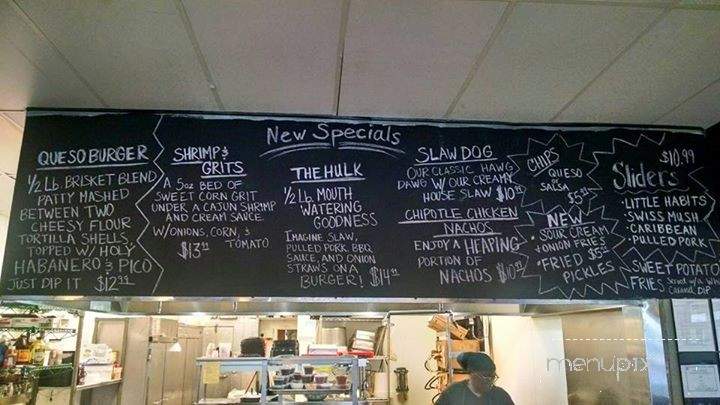 New Specials
QUESO BURGER
1/2 Lb. BRISKET BLEND
PATTY MASHED
BETWEEN TWO
CHEESY FLOUR
TORTILLA SHELLS,
TOPPED W/ HOLY
HABANERO & PICO
JUST DIP IT $12.99
SHRIMP &
GRITS
A 5oz BED OF
SWEET CORN GRIT
UNDER A CAJUN SHRIMP
AND CREAM SAUCE.
W/ONIONS, CORN, &
TOMATO
$13.99
THE HULK
1/2 Lb. MOUTH
WATERING
GOODNESS
IMAGINE SLAW,
PULLED PORK, BBQ
SAUCE, AND ONION
STRAWS ON A
BURGER! $14.99
SLAW DOG
OUR CLASSIC HAWG
DAWG W/ OUR CREAMY
HOUSE SLAW $10.99
CHIPOTLE CHICKEN
NACHOS
ENJOY A HEAPING
PORTION OF
NACHOS $10.99
CHIPS
QUESO
or
SALSA
$5.99
NEW
• SOUR CREAM
& ONION FRIES
• FRIED $5.99
PICKLES
$10.99
Sliders
• LITTLE HABITS
• SWISS MUSH
• CARIBBEAN
• PULLED PORK
SWEET POTATO
FRIES Served w/a
Caramel DIP
menupix